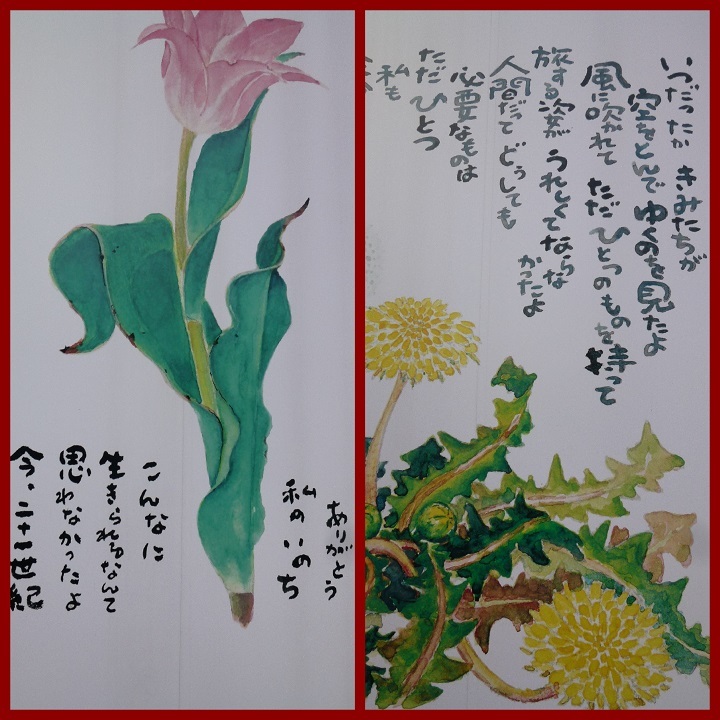 ありがとう
私のいのち
こんなに
生きられるなんて
思わなかったよ
今、二十一世紀
いつだったか きみたちが
空をとんで ゆくのを見たよ
風に吹かれて ただ ひとつのものを持って
旅する姿が うれしくてならな
かったよ
人間だって どうしても
必要なものは
ただ ひとつ
私も